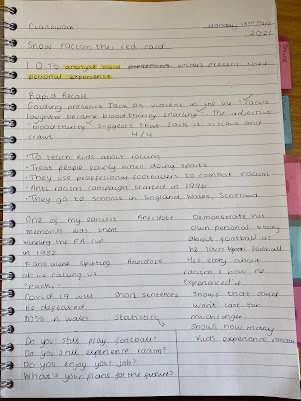 Classwork
Monday 18th
2021
Show racism the red card
L.O. To analyse how presents writers present their
personal experience
Rapid Recall
Golding presents Jack as violent in the line "Jack's
laughter became bloodthirsty snarling". The adjective
"bloodthirsty" suggests that Jack is vicious and
cruel. 4/4
· To teach kids about racism
· Treat people fairly when doing sports
· They use proffesional footballers to combat racism
· Anti racism campaign started in 1996
· They go to schools in England, Wales, Scotland
One of my earliest Anecdote Demonstrate his
memories was them own personal story
winning the FA Cup about football as
in 1982 he loves football
Fans were spitting Anecdote His story about
at us calling us racism & how he
experienced it
Covid 19 will short sentences Shows that covid
be defeated won't last for
much longer
in Wales Statistics Shows how many
kids experience racism
Do you still play football?
Do you still experience racism?
Do you enjoy your job?
What's your plans for the future?